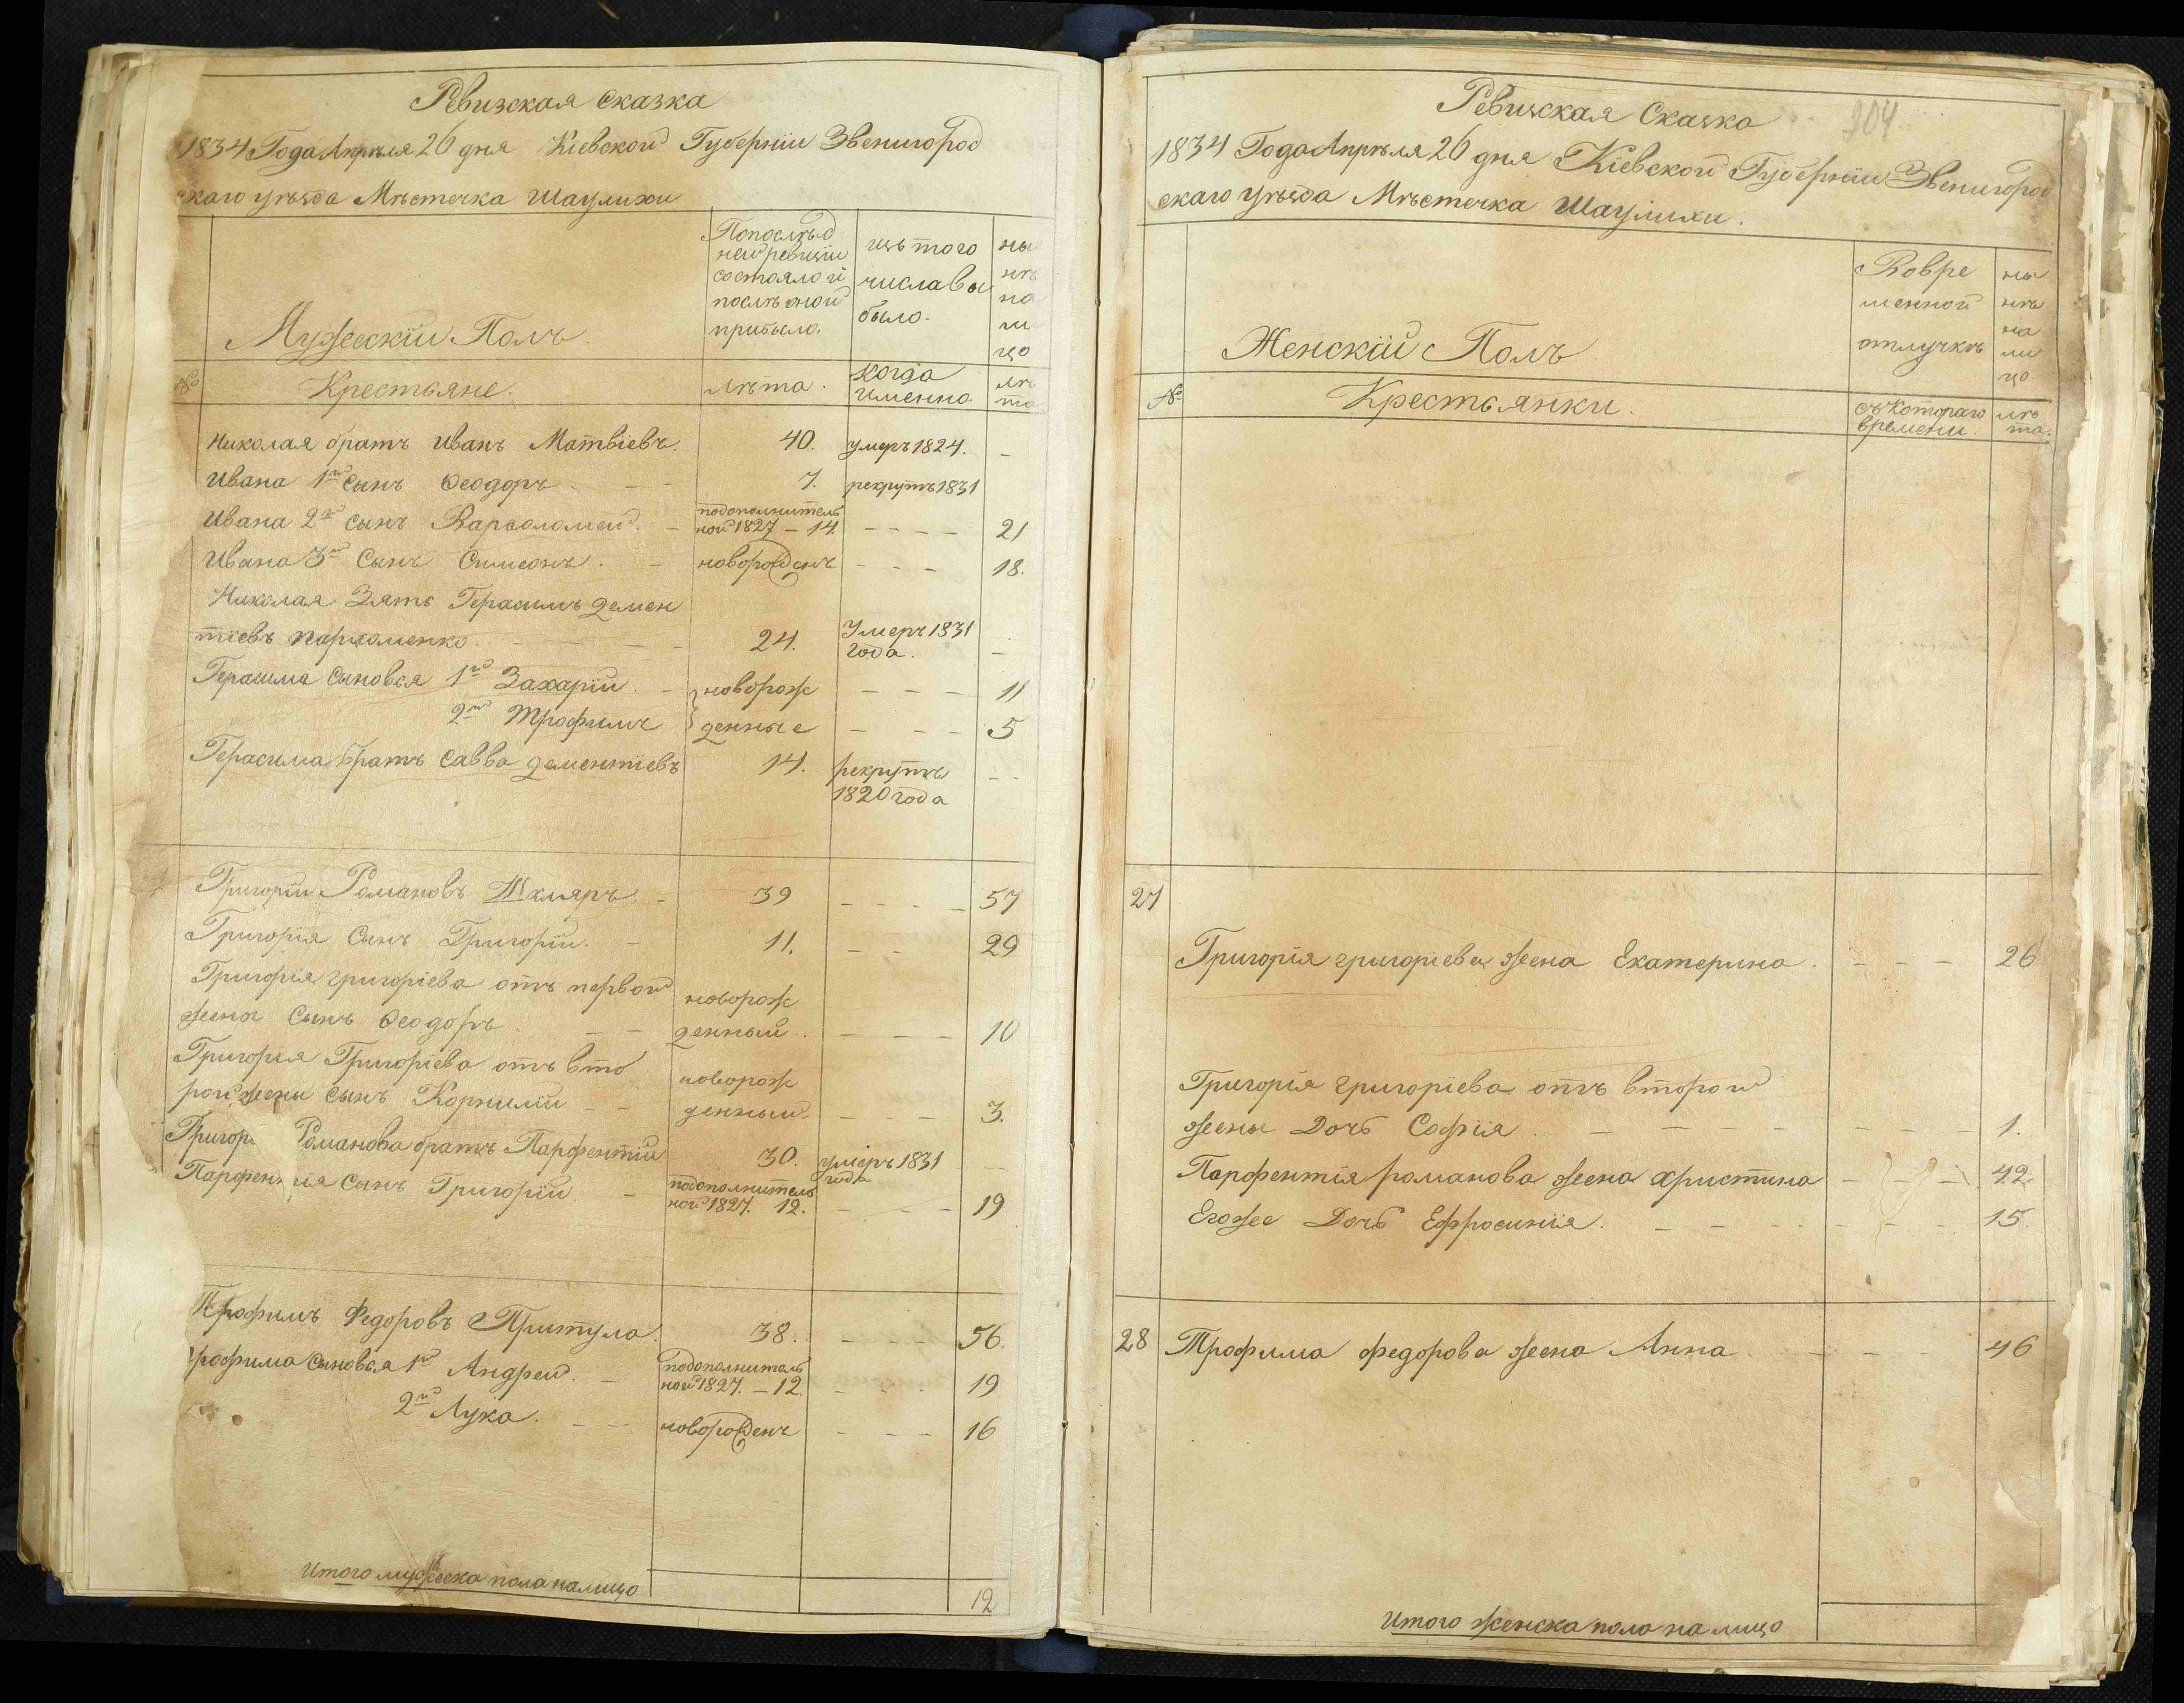 Ревизская сказка
1834 Года Апрѣля 26 дня Кіевской Губерніи Звенигород
скаго уѣзда Мѣстечка Шаулихи
Мужескій Полъ
Попослѣд
ней ревизіи
состояло и
послѣ оной
прибыло.
изъ того
числа вы
было.
ны
нѣ
на
ли
цо
№
Крестьяне.
лѣта.
когда
именно
лѣ
та
Николая братъ Иванъ Матвіевъ. 40. умеръ 1824. -
Ивана 1й сынъ Ѳеодоръ - - 7. рекрутъ 1831
Ивана 2й сынъ Варѳоломей. - подополнитель
ной 1827 - 14 - - - - 21
Ивана 3й Сынъ Симеонъ. - новорожденъ - - - 18.
Николая Зять Герасимъ Демен
тіевъ Пархоменко. - - - 24. Умеръ 1831
года. -
Герасима Сыновья 1й Захарій. - новорож - - - 11
2й Трофимъ денные - - - 5
Герасима братъ Савва Дементіевъ 14. рекрутъ - -
1820 года
Григорій Романовъ Шкляръ. - 39 - - - - 57
Григорія Сынъ Григорій. - 11. - - 29
Григорія Григоріева отъ первой новорож
жены Сынъ Ѳеодоръ - - денный. - - - 10
Григорія Григоріева отъ вто новорож
рой жены сынъ Корнилій - - денный. - - - 3.
Григор Романова братъ Парфентій 30. умеръ 1831 -
года
Парфен ія Сынъ Григорій. - подополнитель
ной 1827. 12. - - - 19
Трофимъ Федоровъ Притула. 38. - - - 56.
рофима Сыновья 1й Андрей. - подополнитель
ной 1827. - 12. - - - 19
2й Лука. - - новорожденъ - - - 16
Итого мужеска пола налицо 12
Ревизская Сказка
204
1834 Года Апрѣля 26 дня Кіевской Губерніи Звенигород
скаго уѣзда Мѣстечка Шаулихи.
Женскій Полъ
Вовре
менной
отлучкѣ
ны
нѣ
на
ли
цо.
№
Крестьянки.
съ котораго
времени.
лѣ
та.
27
Григорія Григоріева жена Екатерина. - - - 26
Григорія Григоріева отъ второй
жены Дочь Софія. - - - - - - - 1.
Парфентія романова жена Христина - - - 42
Егоже Дочь Ефросинія. - - - - - - 15.
28 Трофима федорова жена Анна. - - - 46
Итого женска пола налицо